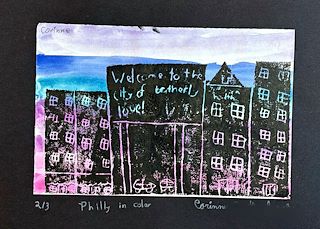 Corinne
Welcome to the
city of brotherly
love!
2/3 Philly in color Corinne